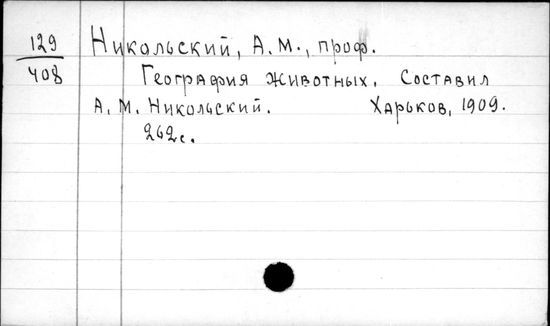 129
408
Никольский, А.М., проф.
География животных. Составил
А.М. Никольский. Харьков, 1909.
262с.